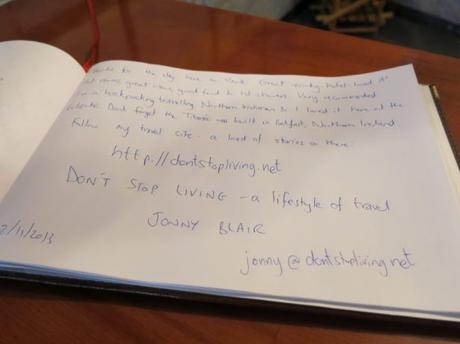 Thanks for the stay here in Great Hotel. loved it!
great views, great food & hot showers. Very recommended
I'm a backpacking travelling Northern Irishman & I loved it here at the
Don't forget the Titanic was built in Belfast, Northern Ireland.
Follow my travel site - a load of stories on there:
http://dontstopliving.net
DON'T STOP LIVING - a lifestyle of travel
JONNY BLAIR
/11/2013
jonny@dontstopliving.net